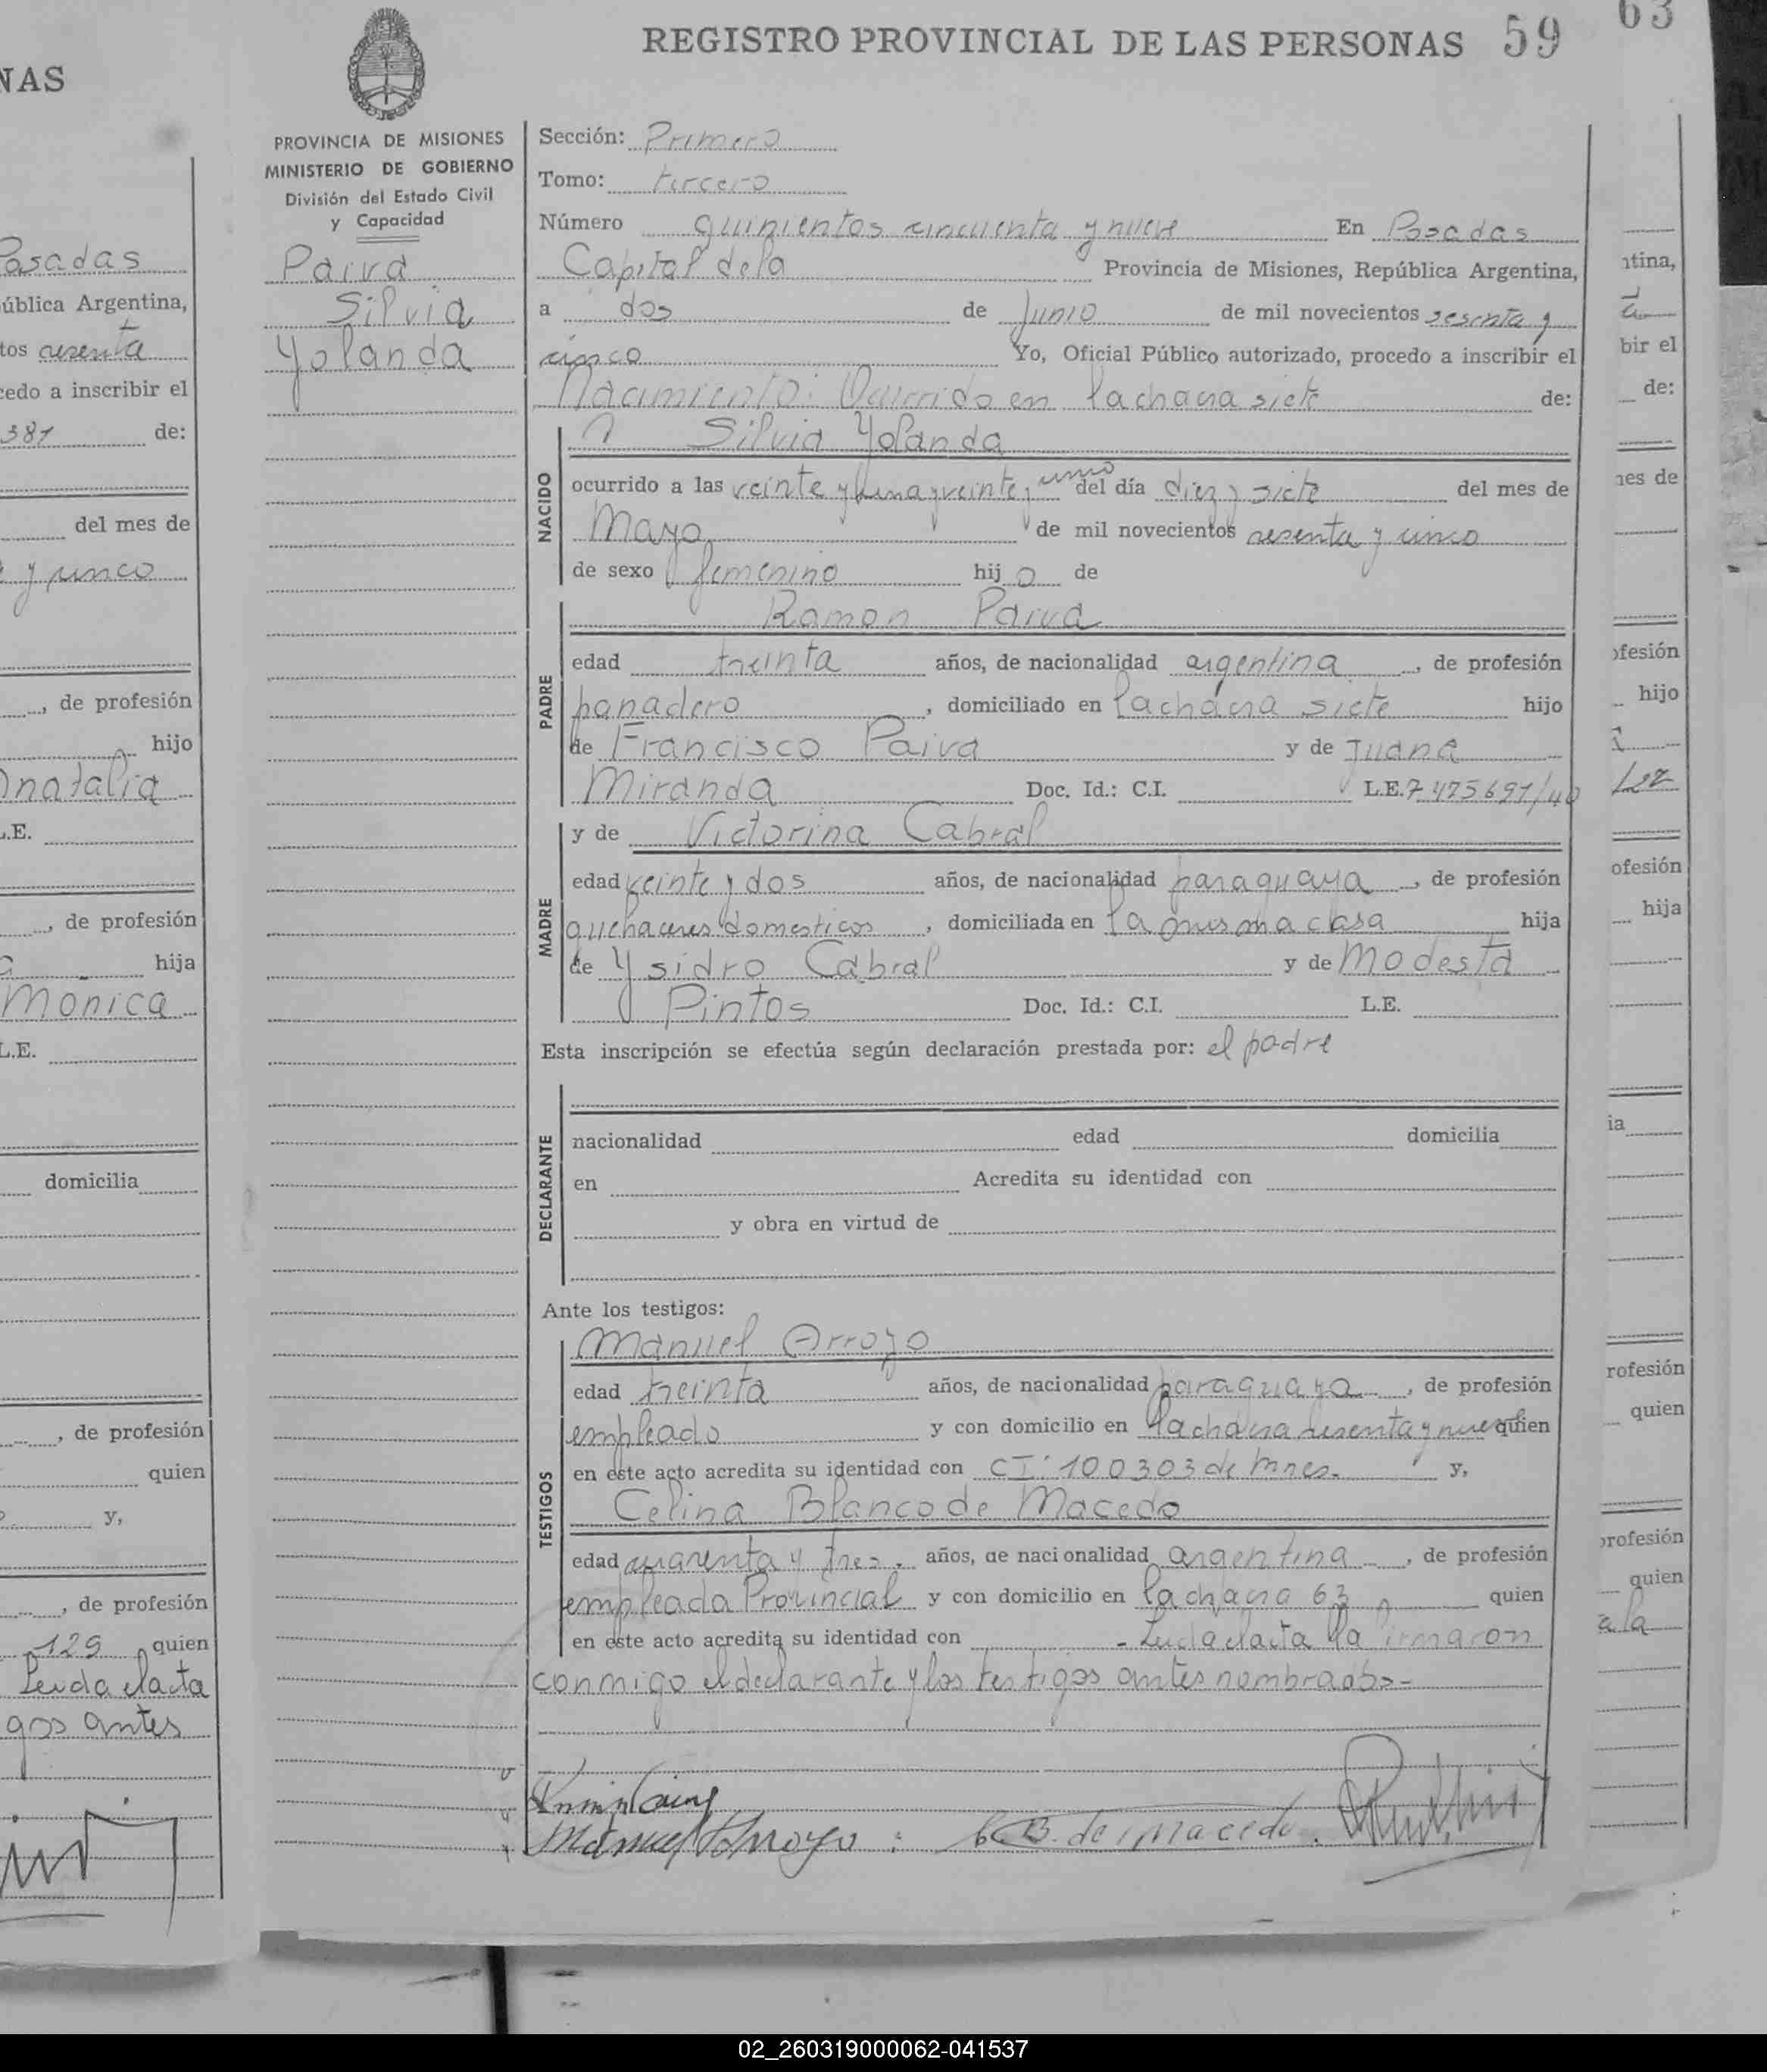 REGISTRO PROVINCIAL DE LAS PERSONAS 59
63
PROVINCIA DE MISIONES
MINISTERIO DE GOBIERNO
División del Estado Civil
y Capacidad
Paiva
Silvia
Yolanda
Sección: Primera
Tomo: tercero
Número quinientos cincuenta y nueve En Posadas
Capital de la Provincia de Misiones, República Argentina,
a dos de Junio de mil novecientos sesenta y
cinco Yo, Oficial Público autorizado, procedo a inscribir el
Nacimiento: Ocurrido en la chacra siete de:
NACIDO
Silvia Yolanda
ocurrido a las veinte y una y veinte y uno del día diez y siete del mes de
Mayo de mil novecientos sesenta y cinco
de sexo femenino hij o de
PADRE
Ramon Paiva
edad treinta años, de nacionalidad argentina, de profesión
panadero, domiciliado en la chacra siete hijo
de Francisco Paiva y de Juana
Miranda Doc. Id.: C.I. L.E. 7.475.691/40
MADRE
y de Victorina Cabral
edad veinte y dos años, de nacionalidad paraguaya, de profesión
quehaceres domesticos, domiciliada en la misma casa hija
de Ysidro Cabral y de Modesta
Pintos Doc. Id.: C.I. L.E.
Esta inscripción se efectúa según declaración prestada por: el padre
DECLARANTE
nacionalidad edad domicilia
en Acredita su identidad con
y obra en virtud de
Ante los testigos:
TESTIGOS
Manuel Arroyo
edad treinta años, de nacionalidad paraguaya, de profesión
empleado y con domicilio en la chacra sesenta y nueve quien
en este acto acredita su identidad con CI: 100303 de Mnes. y,
Celina Blanco de Macedo
edad cuarenta y tres. años, de nacionalidad argentina, de profesión
empleada Provincial y con domicilio en la chacra 63 quien
en este acto acredita su identidad con - Leida el acta la firmaron
conmigo el declarante y los testigos antes nombrados.-
Manuel Arroyo
C B. de Macedo.
NAS
Posadas
ública Argentina,
tos sesenta
cedo a inscribir el
381 de:
del mes de
y cinco
, de profesión
hijo
Anatalia
L.E.
, de profesión
hija
Mónica
L.E.
domicilia
, de profesión
quien
y,
, de profesión
129 quien
Leida el acta
gos antes
ntina,
bir el
de:
nes de
ofesión
hijo
ofesión
hija
ia
rofesión
quien
profesión
quien
a la
02_260319000062-041537